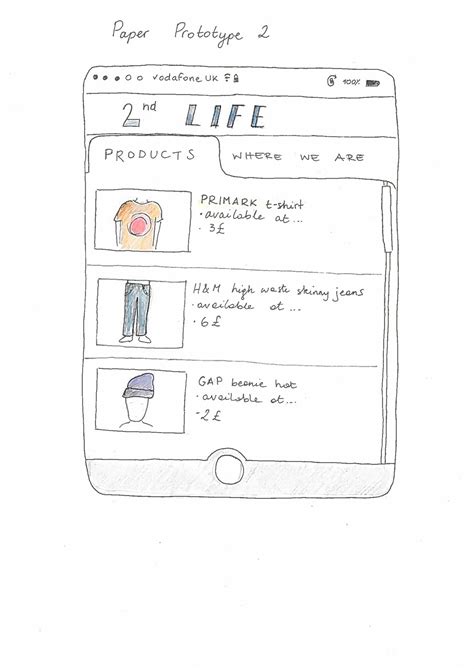 Paper Prototype 2
vodafone UK 100%
2nd LIFE
PRODUCTS WHERE WE ARE
PRIMARK t-shirt
· available at...
· 3£
H&M high waste skinny jeans
· available at ...
· 6£
GAP beanie hat
· available at...
· 2£